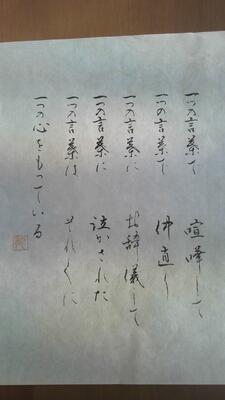 一つの言葉で　喧嘩して
一つの言葉で　仲直り
一つの言葉に　お辞儀して
一つの言葉に　泣かされた
一つの言葉は　それぞれに
一つの心をもっている